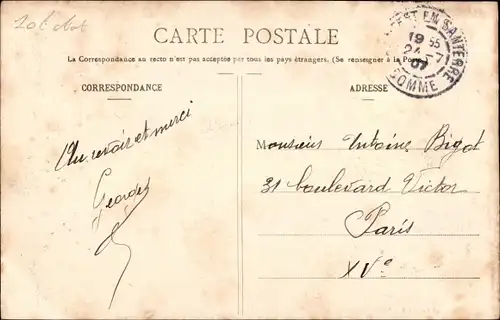 CARTE POSTALE
La Correspondance au recto n'est pas acceptée par tous les pays étrangers. (Se renseigner à la Poste)
CORRESPONDANCE
ADRESSE
EN SANTERRE
19 55
24 -7
07
SOMME
Au revoir et merci
Georges
Monsieur Antoine Bigot
31 boulevard Victor
Paris
XVe